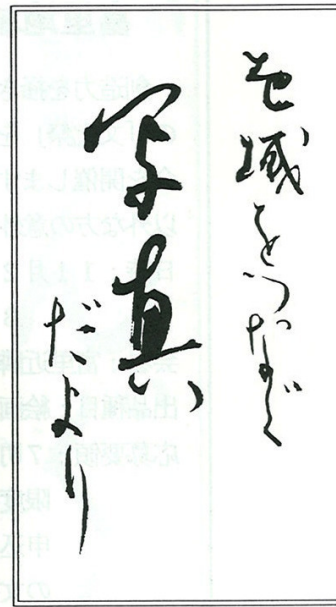 地域をつなぐ
写真
だより